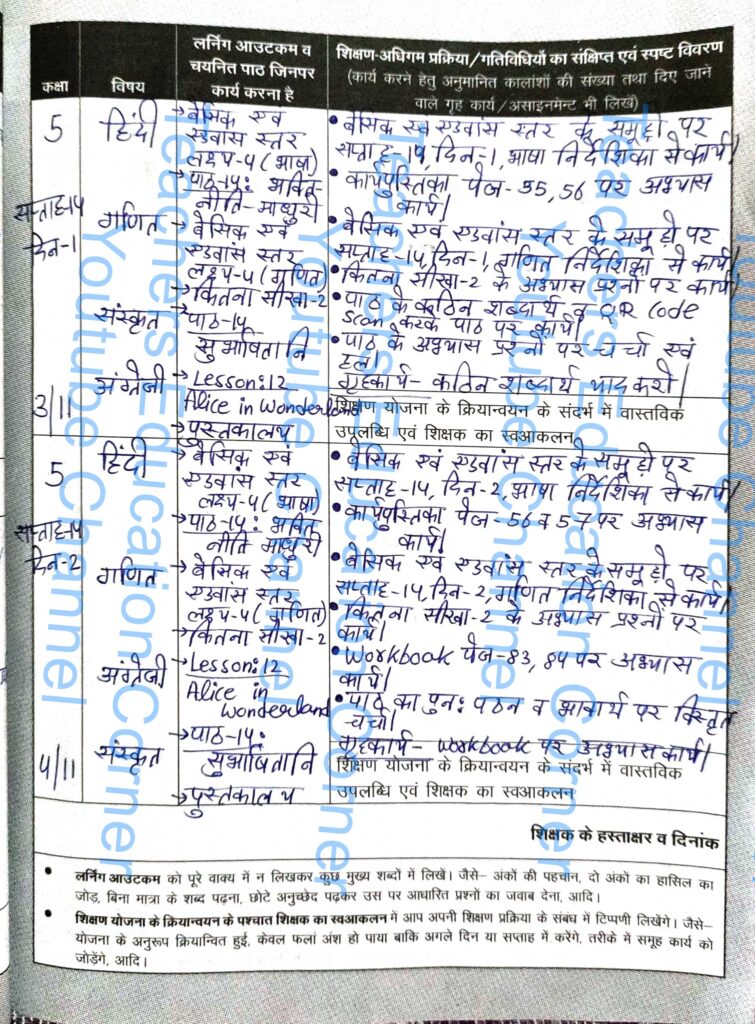 कक्षा
विषय
लर्निंग आउटकम व
चयनित पाठ जिनपर
कार्य करना है
शिक्षण-अधिगम प्रक्रिया/गतिविधियों का संक्षिप्त एवं स्पष्ट विवरण
(कार्य करने हेतु अनुमानित कालांशों की संख्या तथा दिए जाने
वाले गृह कार्य/असाइनमेन्ट भी लिखें)
5
सप्ताह-14
दिन-1
3/11
हिंदी
→ बेसिक एवं
एडवांस स्तर
लक्ष्य-4 (भाषा)
→ पाठ-14: भक्ति-
नीति-माधुरी
• बेसिक एवं एडवांस स्तर के समूहों पर
सप्ताह-14, दिन-1, भाषा निर्देशिका से कार्य।
• कार्यपुस्तिका पेज-55,56 पर अभ्यास
कार्य।
गणित
→ बेसिक एवं
एडवांस स्तर
लक्ष्य-4 (गणित)
→ कितना सीखा-2
• बेसिक एवं एडवांस स्तर के समूहों पर
सप्ताह-14, दिन-1, गणित निर्देशिका से कार्य।
• कितना सीखा-2 के अभ्यास प्रश्नों पर कार्य।
संस्कृत
→ पाठ-14
सुभाषितानि
• पाठ के कठिन शब्दार्थ व QR Code
Scan करके पाठ पर कार्य।
• पाठ के अभ्यास प्रश्नों पर चर्चा एवं
हल।
अंग्रेजी
→ Lesson:12
Alice in Wonderland
→ पुस्तकालय
गृहकार्य- कठिन शब्दार्थ याद करो।
शिक्षण योजना के क्रियान्वयन के संदर्भ में वास्तविक
उपलब्धि एवं शिक्षक का स्वआकलन
5
सप्ताह-14
दिन-2
4/11
हिंदी
→ बेसिक एवं
एडवांस स्तर
लक्ष्य-4 (भाषा)
→ पाठ-14: भक्ति
नीति माधुरी
• बेसिक एवं एडवांस स्तर के समूहों पर
सप्ताह-14, दिन-2, भाषा निर्देशिका से कार्य।
• कार्यपुस्तिका पेज-56 व 57 पर अभ्यास
कार्य।
गणित
→ बेसिक एवं
एडवांस स्तर
लक्ष्य-4 (गणित)
→ कितना सीखा-2
• बेसिक एवं एडवांस स्तर के समूहों पर
सप्ताह-14, दिन-2, गणित निर्देशिका से कार्य।
• कितना सीखा-2 के अभ्यास प्रश्नों पर
कार्य।
अंग्रेजी
→ Lesson:12
Alice in
Wonderland
• Workbook पेज-83, 84 पर अभ्यास
कार्य।
• पाठ का पुन: पठन व भावार्थ पर विस्तृत
चर्चा।
संस्कृत
→ पाठ-14:
सुभाषितानि
→ पुस्तकालय
गृहकार्य- workbook पर अभ्यास कार्य।
शिक्षण योजना के क्रियान्वयन के संदर्भ में वास्तविक
उपलब्धि एवं शिक्षक का स्वआकलन
शिक्षक के हस्ताक्षर व दिनांक
• लर्निंग आउटकम को पूरे वाक्य में न लिखकर कुछ मुख्य शब्दों में लिखें। जैसे– अंकों की पहचान, दो अंकों का हासिल का
जोड़, बिना मात्रा के शब्द पढ़ना, छोटे अनुच्छेद पढ़कर उस पर आधारित प्रश्नों का जवाब देना, आदि।
• शिक्षण योजना के क्रियान्वयन के पश्चात शिक्षक का स्वआकलन में आप अपनी शिक्षण प्रक्रिया के संबंध में टिप्पणी लिखेंगे। जैसे–
योजना के अनुरूप क्रियान्वित हुई, केवल फलां अंश हो पाया बाकि अगले दिन या सप्ताह में करेंगे, तरीके में समूह कार्य को
जोडेंगे, आदि।
Teachers Education Corner
Youtube Channel
Teachers Education Corner
Youtube Channel
Teachers Education Corner
Youtube Channel